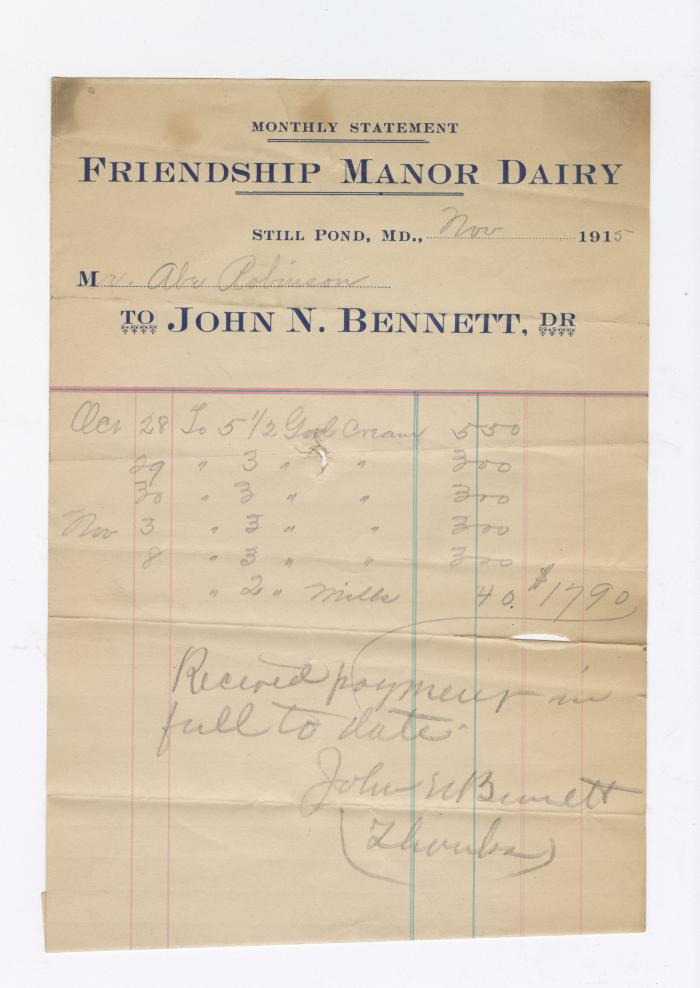 MONTHLY STATEMENT
FRIENDSHIP MANOR DAIRY
STILL POND, MD., Nov 1915
Mr. Abe Robinson
TO JOHN N. BENNETT, DR
Oct 28 To 5 1/2 Gal Cream 5 50
29 " 3 " " 3 00
30 " 3 " " 3 00
Nov 3 " 3 " " 3 00
8 " 3 " " 3 00
" 2 " Milk 40. $17 90
Received payment in
full to date.
John N Bennett
(Thanks)